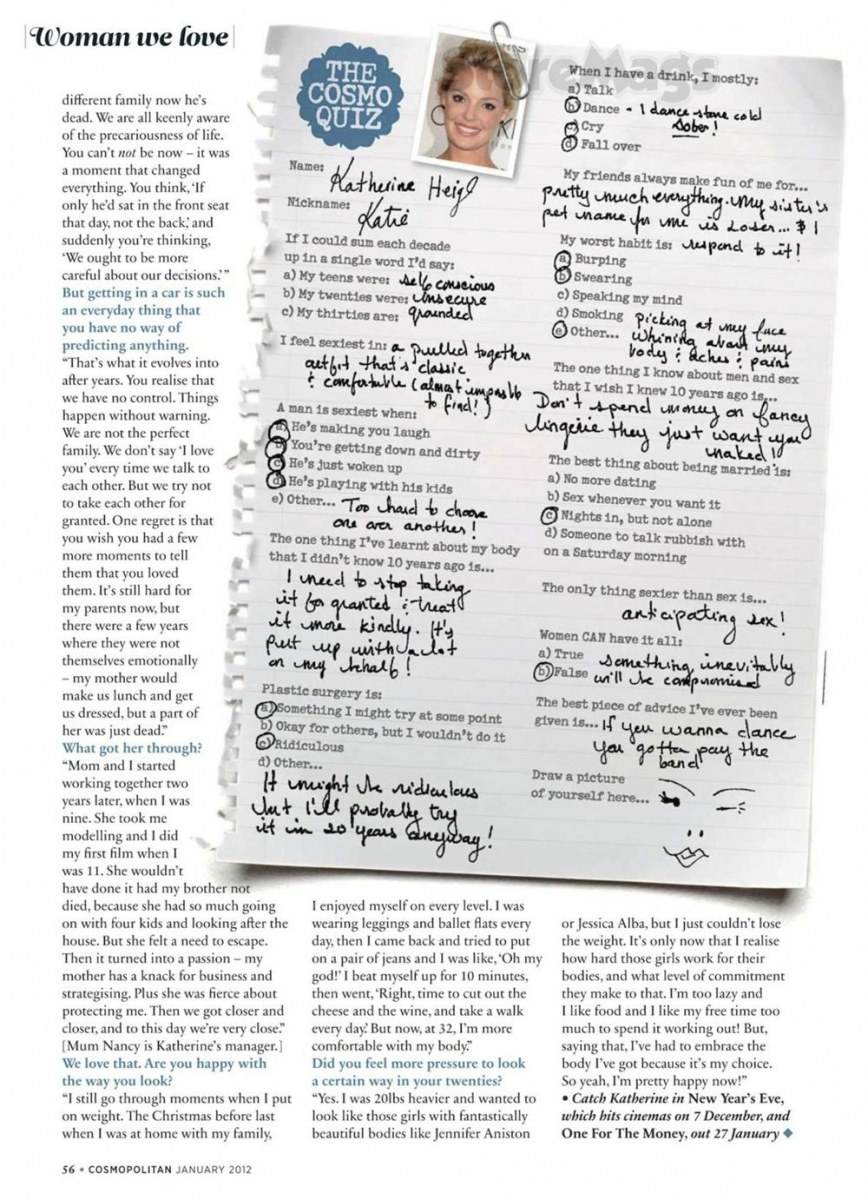 Woman we love
different family now he's
dead. We are all keenly aware
of the precariousness of life.
You can't not be now – it was
a moment that changed
everything. You think, 'If
only he'd sat in the front seat
that day, not the back,' and
suddenly you're thinking,
'We ought to be more
careful about our decisions.'"
But getting in a car is such
an everyday thing that
you have no way of
predicting anything.
"That's what it evolves into
after years. You realise that
we have no control. Things
happen without warning.
We are not the perfect
family. We don't say 'I love
you' every time we talk to
each other. But we try not
to take each other for
granted. One regret is that
you wish you had a few
more moments to tell
them that you loved
them. It's still hard for
my parents now, but
there were a few years
where they were not
themselves emotionally
– my mother would
make us lunch and get
us dressed, but a part of
her was just dead."
What got her through?
"Mom and I started
working together two
years later, when I was
nine. She took me
modelling and I did
my first film when I
was 11. She wouldn't
have done it had my brother not
died, because she had so much going
on with four kids and looking after the
house. But she felt a need to escape.
Then it turned into a passion – my
mother has a knack for business and
strategising. Plus she was fierce about
protecting me. Then we got closer and
closer, and to this day we're very close."
[Mum Nancy is Katherine's manager.]
We love that. Are you happy with
the way you look?
"I still go through moments when I put
on weight. The Christmas before last
when I was at home with my family,
THE
COSMO
QUIZ
Name: Katherine Heigl
Nickname: Katie
If I could sum each decade
up in a single word I'd say:
a) My teens were: self conscious
b) My twenties were: unsecure
c) My thirties are: grounded
I feel sexiest in: a pulled together
outfit that's classic
& comfortable (almost impossible
to find!)
A man is sexiest when:
a) He's making you laugh
b) You're getting down and dirty
c) He's just woken up
d) He's playing with his kids
e) Other... Too hard to choose
one over another!
The one thing I've learnt about my body
that I didn't know 10 years ago is...
I need to stop taking
it for granted & treat
it more kindly. It's
put up with a lot
on my behalf!
Plastic surgery is:
a) Something I might try at some point
b) Okay for others, but I wouldn't do it
c) Ridiculous
d) Other...
It might be ridiculous
but I'll probably try
it in 20 years anyway!
When I have a drink, I mostly:
a) Talk
b) Dance - I dance stone cold
sober!
c) Cry
d) Fall over
My friends always make fun of me for...
pretty much everything. My sister's
pet name for me is Loser... & I
respond to it!
My worst habit is:
a) Burping
b) Swearing
c) Speaking my mind
d) Smoking
e) Other... picking at my face
whining about my
body & aches & pains
The one thing I know about men and sex
that I wish I knew 10 years ago is...
Don't spend money on fancy
lingerie they just want you
naked!
The best thing about being married is:
a) No more dating
b) Sex whenever you want it
c) Nights in, but not alone
d) Someone to talk rubbish with
on a Saturday morning
The only thing sexier than sex is...
anticipating sex!
Women CAN have it all:
a) True
b) False something inevitably
will be compromised
The best piece of advice I've ever been
given is... If you wanna dance
you gotta pay the
band
Draw a picture
of yourself here...
I enjoyed myself on every level. I was
wearing leggings and ballet flats every
day, then I came back and tried to put
on a pair of jeans and I was like, 'Oh my
god!' I beat myself up for 10 minutes,
then went, 'Right, time to cut out the
cheese and the wine, and take a walk
every day.' But now, at 32, I'm more
comfortable with my body."
Did you feel more pressure to look
a certain way in your twenties?
"Yes. I was 20lbs heavier and wanted to
look like those girls with fantastically
beautiful bodies like Jennifer Aniston
or Jessica Alba, but I just couldn't lose
the weight. It's only now that I realise
how hard those girls work for their
bodies, and what level of commitment
they make to that. I'm too lazy and
I like food and I like my free time too
much to spend it working out! But,
saying that, I've had to embrace the
body I've got because it's my choice.
So yeah, I'm pretty happy now!"
• Catch Katherine in New Year's Eve,
which hits cinemas on 7 December, and
One For The Money, out 27 January
56 • COSMOPOLITAN JANUARY 2012